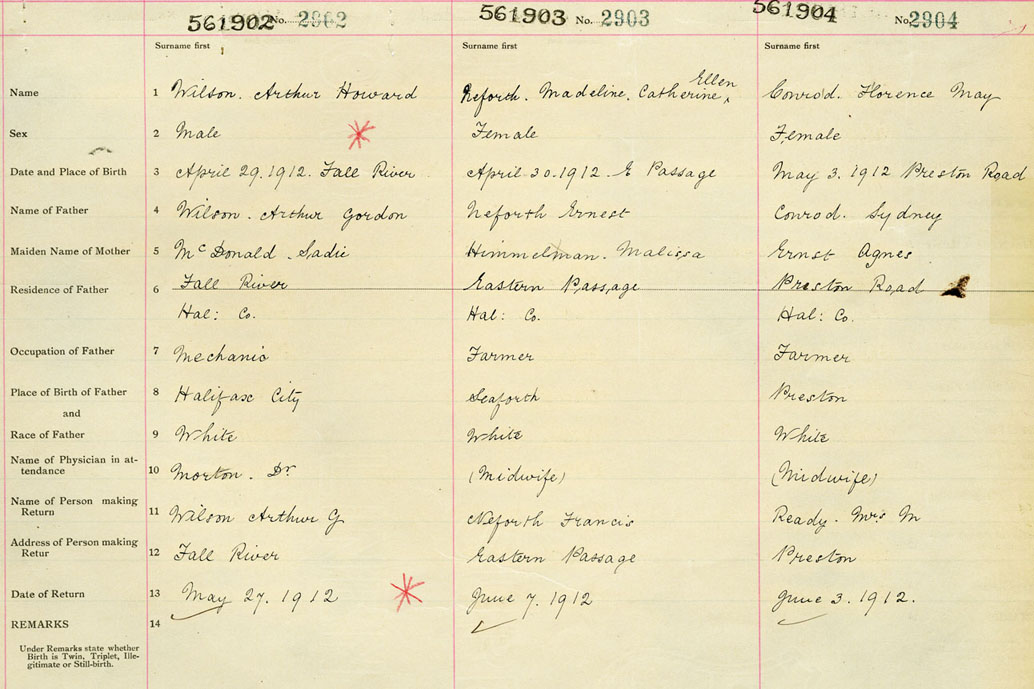 561902 No. 2902 561903 No. 2903 561904 No. 2904
Surname first Surname first Surname first
Ellen
Name 1 Wilson. Arthur Howard Neforth. Madeline. Catherine, Conrod. Florence May
Sex 2 Male Female Female
Date and Place of Birth 3 April 29. 1912. Fall River April 30. 1912. E Passage May 3. 1912 Preston Road
Name of Father 4 Wilson. Arthur Gordon Neforth Ernest Conrod. Sydney
Maiden Name of Mother 5 McDonald. Sadie Himmelman. Malissa Ernst Agnes
Residence of Father 6 Fall River Eastern Passage Preston Road
Hal: Co. Hal: Co. Hal: Co.
Occupation of Father 7 Mechanic Farmer Farmer
Place of Birth of Father 8 Halifax City Seaforth Preston
and
Race of Father 9 White White White
Name of Physician in at-
tendance 10 Morton. Dr (Midwife) (Midwife)
Name of Person making
Return 11 Wilson Arthur G Neforth Francis Ready. Mrs M
Address of Person making
Retur 12 Fall River Eastern Passage Preston
Date of Return 13 May 27. 1912 June 7. 1912 June 3. 1912.
REMARKS 14
Under Remarks state whether
Birth is Twin, Triplet, Ille-
gitimate or Still-birth.